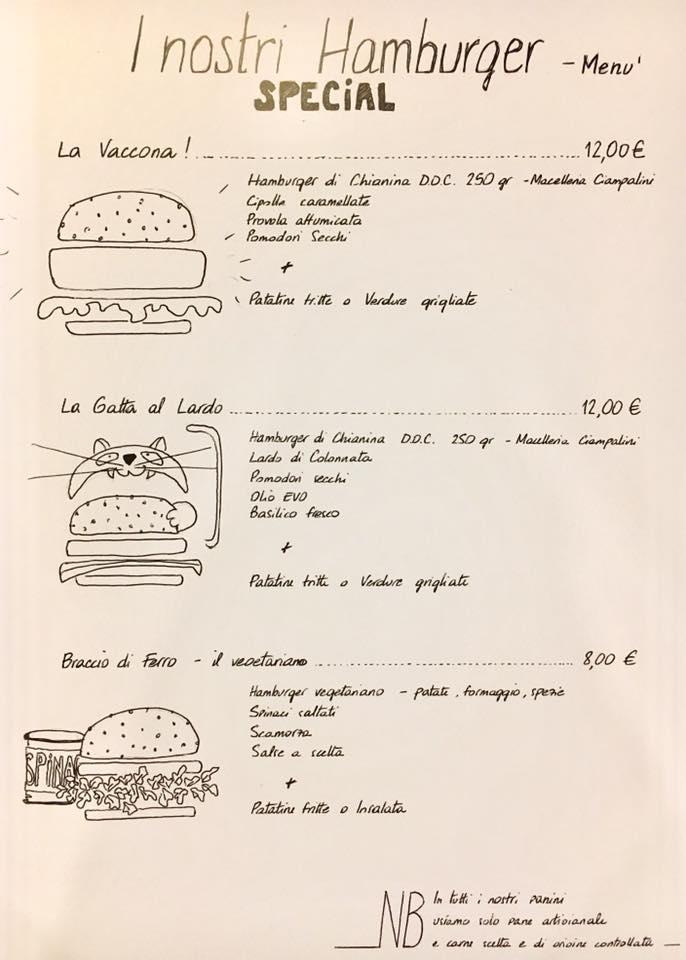 I nostri Hamburger - Menu'
SPECIAL
La Vaccona! 12,00 €
Hamburger di Chianina D.O.C. 250 gr - Macelleria Ciampalini
Cipolle caramellate
Provola affumicata
Pomodori Secchi
+
Patatine fritte o Verdure grigliate
La Gatta al Lardo 12,00 €
Hamburger di Chianina D.O.C. 250 gr - Macelleria Ciampalini
Lardo di Colonnata
Pomodori secchi
Olio EVO
Basilico fresco
+
Patatine fritte o Verdure grigliate
Braccio di Ferro - il vegetariano 8,00 €
Hamburger vegetariano - patate, formaggio, spezie
Spinaci saltati
Scamorza
Salse a scelta
SPINA
+
Patatine fritte o Insalata
NB In tutti i nostri panini
usiamo solo pane artigianale
e carne scelta e di origine controllata